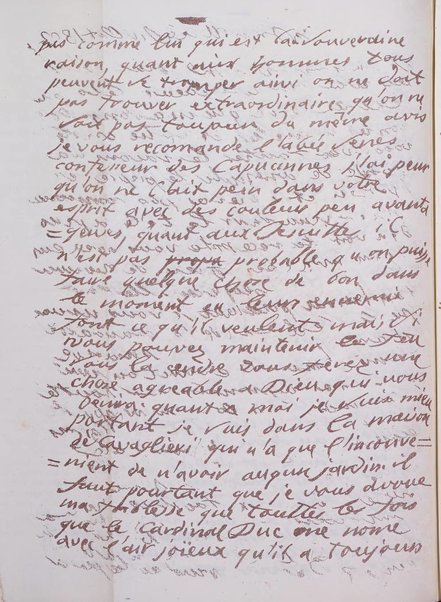 pas comme lui qui est la souveraine
raison, quant aux hommes tous
peuvent se tromper ainsi on ne doit
pas trouver extraordinaires qu'on ne
soit pas toujours du même avis
je vous recomande l'abbé
confeseur des Capucinnes j'ai peur
qu'on ne l'ait pein dans votre
esprit avec des couleurs peu avanta
=geuses quant aux Jesuittes il
n'est pas probable qu'on puisse
faire quelque chose de bon dans
le moment leur
font ce qu'il veulent mais si
vous pouvez maintenir le feu
sous la cendre vous ferez une
chose agreable a Dieu qui vous
benira quant a moi je suis mieu
portant je vais dans la maison
de Cavaglieri qui n'a que l'inconve=
=nient de n'avoir aucun jardin il
faut pourtant que je vous avoue
ma que touttes les fois
que le Cardinal Duc me nome
avec l'air joïeux qu'il a toujours